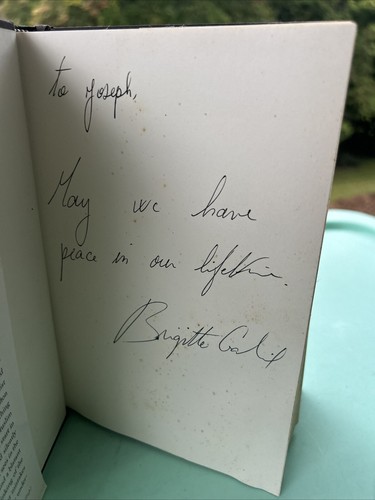 to Joseph,
May we have
peace in our lifetime.
Brigitte